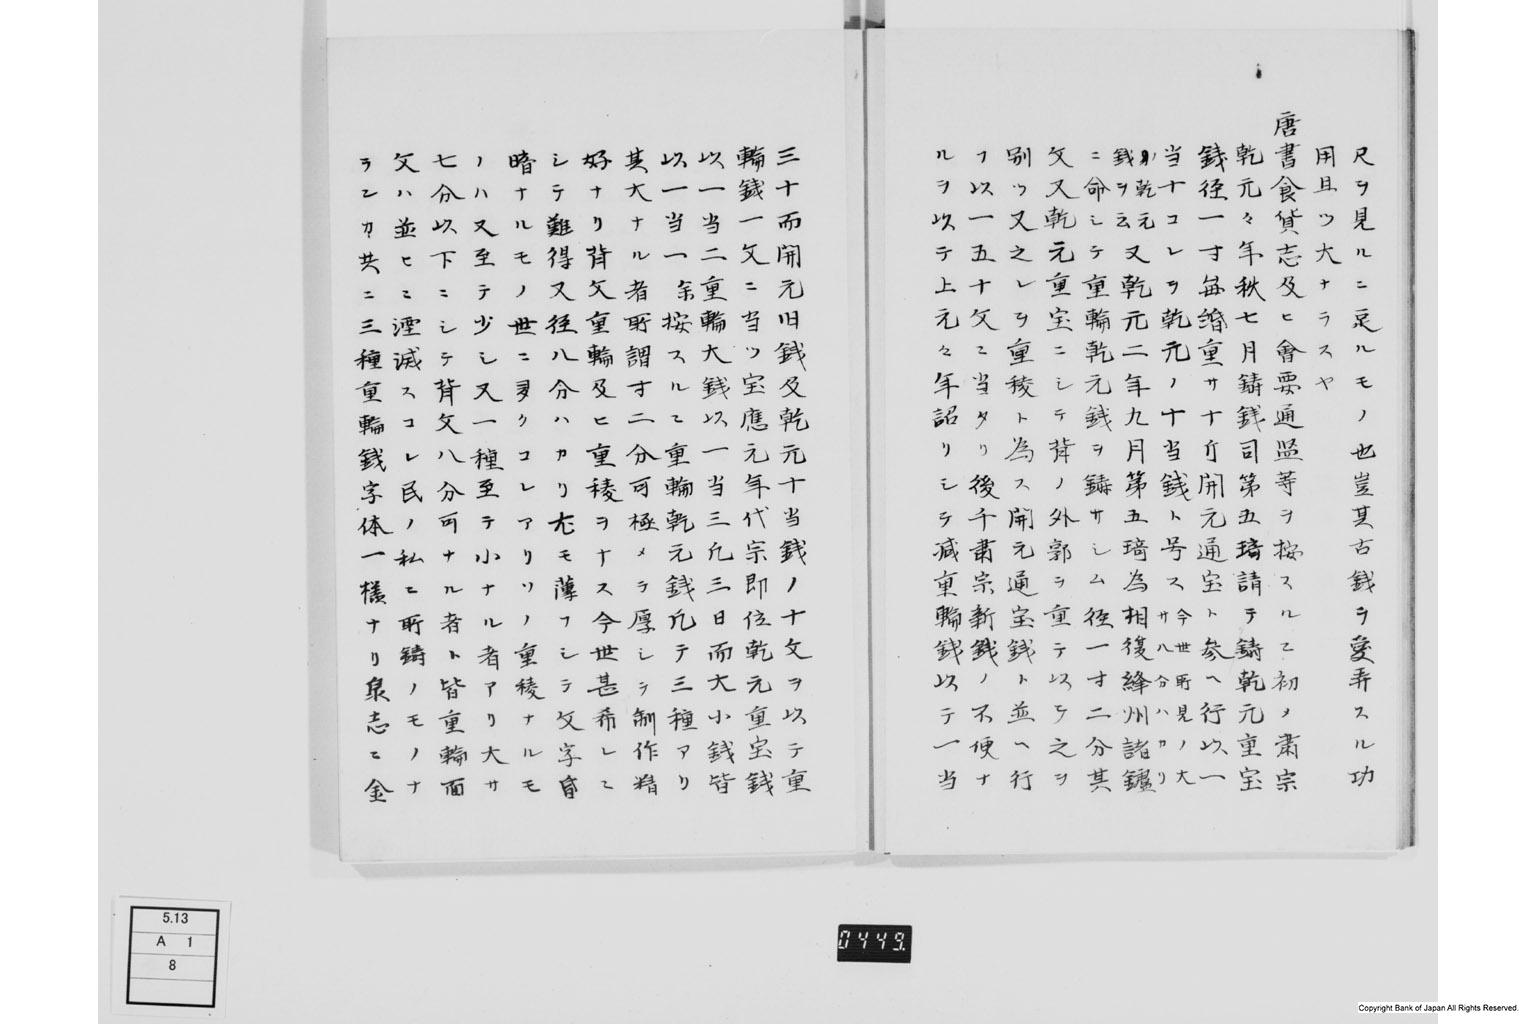 尺ヲ見ルニ足ルモノ也豈其古銭ヲ愛弄スル功
用且ツ大ナラスヤ
唐書食貨志及ヒ會要通鑑等ヲ按スルニ初メ粛宗
乾元々年秋七月鋳銭司第五琦請テ鋳乾元重宝
銭径一寸毎緡重サ十斤開元通宝ト参ヘ行以一
当十コレヲ乾元ノ十当銭ト号ス今世所見ノ大サ八分ハカリ
乾元銭ヲ云又乾元二年九月第五琦為相復絳州諸鑪
ニ命シテ重輪乾元銭ヲ鋳サシム径一寸二分其
文又乾元重宝ニシテ背ノ外郭ヲ重テ以テ之ヲ
別ツ又之レヲ重稜ト為ス開元通宝銭ト並ヘ行
フ以一五十文ニ当タリ後千粛宗新銭ノ不便ナ
ルヲ以テ上元々年詔リシテ減重輪銭以テ一当
三十而開元旧銭及乾元十当銭ノ十文ヲ以テ重
輪銭一文ニ当ツ宝應元年代宗即位乾元重宝銭
以一当二重輪大銭以一当三凡三日而大小銭皆
以一当一余按スルニ重輪乾元銭凡テ三種アリ
其大ナル者所謂寸二分可極メテ厚シテ制作精
好ナリ背文重輪及ヒ重稜ヲナス今世甚希レニ
シテ難得又径八分ハカリ尤モ薄フシテ文字昏
暗ナルモノ世ニ多クコレアリソノ重稜ナルモ
ノハ又至テ少シ又一種至テ小ナル者アリ大サ
七分以下ニシテ背文八分可ナル者ト皆重輪面
文ハ並ヒニ湮滅スコレ民ノ私ニ所鋳ノモノナ
ランカ共ニ三種重輪銭字体一様ナリ泉志ニ金
5.13
A 1
8
0449.
Copyright Bank of Japan All Rights Reserved.